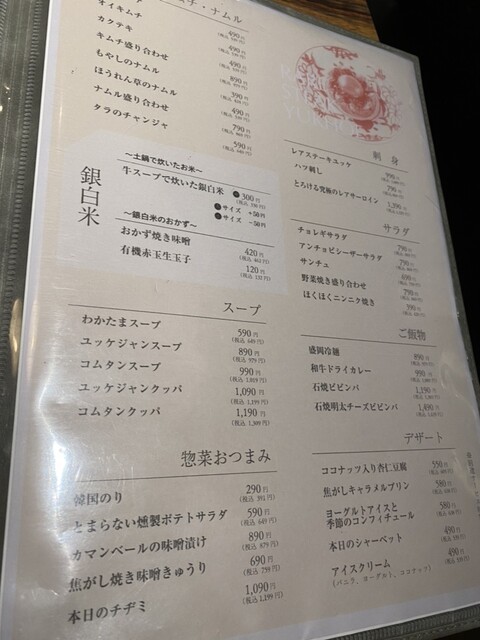 チ・ナムル
オイキムチ 490円
カクテキ 490円
キムチ盛り合わせ 890円
もやしのナムル 390円
ほうれん草のナムル 490円
ナムル盛り合わせ 790円
タラのチャンジャ 590円
銀白米
〜土鍋で炊いたお米〜
牛スープで炊いた銀白米 300円
サイズ +50円
サイズ −50円
〜銀白米のおかず〜
おかず焼き味噌 420円
(税込 462円)
有機赤玉生玉子 120円
(税込 132円)
スープ
わかたまスープ 590円
(税込 649円)
ユッケジャンスープ 890円
(税込 979円)
コムタンスープ 990円
ユッケジャンクッパ 1,090円
(税込 1,199円)
コムタンクッパ 1,190円
(税込 1,309円)
惣菜おつまみ
韓国のり 290円
とまらない燻製ポテトサラダ 590円
(税込 649円)
カマンベールの味噌漬け 890円
(税込 979円)
焦がし焼き味噌きゅうり 690円
(税込 759円)
本日のチヂミ 1,090円
(税込 1,199円)
刺身
レアステーキユッケ 990円
ハツ刺し 790円
とろける究極のレアサーロイン
サラダ
チョレギサラダ 790円
アンチョビシーザーサラダ 790円
サンチュ
野菜焼き盛り合わせ
ほくほくニンニク焼き 390円
ご飯物
盛岡冷麺 890円
和牛ドライカレー 990円
石焼ビビンバ 1,190円
石焼明太チーズビビンバ 1,490円
デザート
ココナッツ入り杏仁豆腐 550円
焦がしキャラメルプリン 580円
ヨーグルトアイスと
季節のコンフィチュール 580円
本日のシャーベット 490円
アイスクリーム 490円
(バニラ、ヨーグルト、ココナッツ)